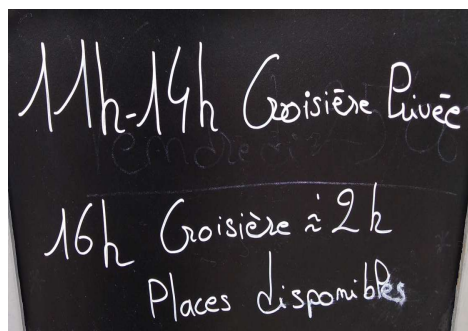 11h-14h Croisière Privée
16h Croisière ≈ 2h
Places disponibles